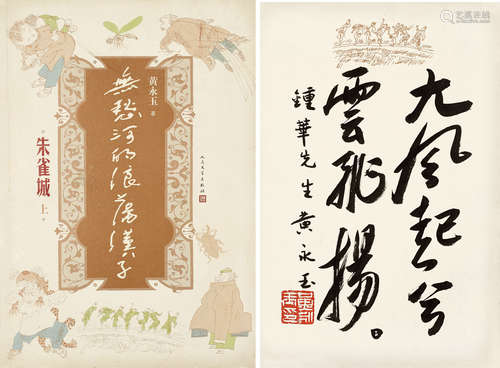 黄永玉 著
無愁河的浪蕩漢子
朱雀城
上
人民文学出版社
大风起兮
雲飛揚。
鍾華先生 黄永玉
艺典中国